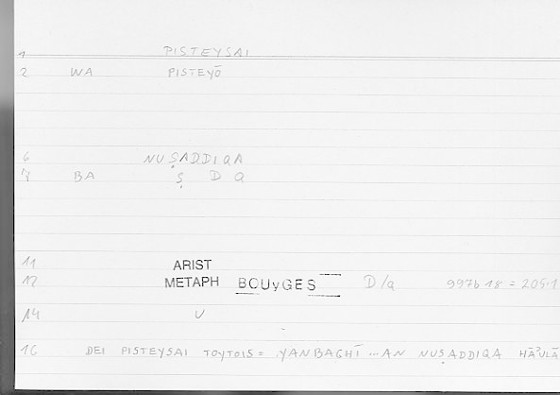 1 PISTEYSAI
2 WA PISTEYŌ
6 NUṢADDIQA
7 BA Ṣ D Q
11 ARIST
12 METAPH BOUyGES D/q 997b18 = 205.1
14 U
16 DEI PISTEYSAI TOYTOIS = YANBAGHĪ ... AN NUṢADDIQA HĀʾULĀ